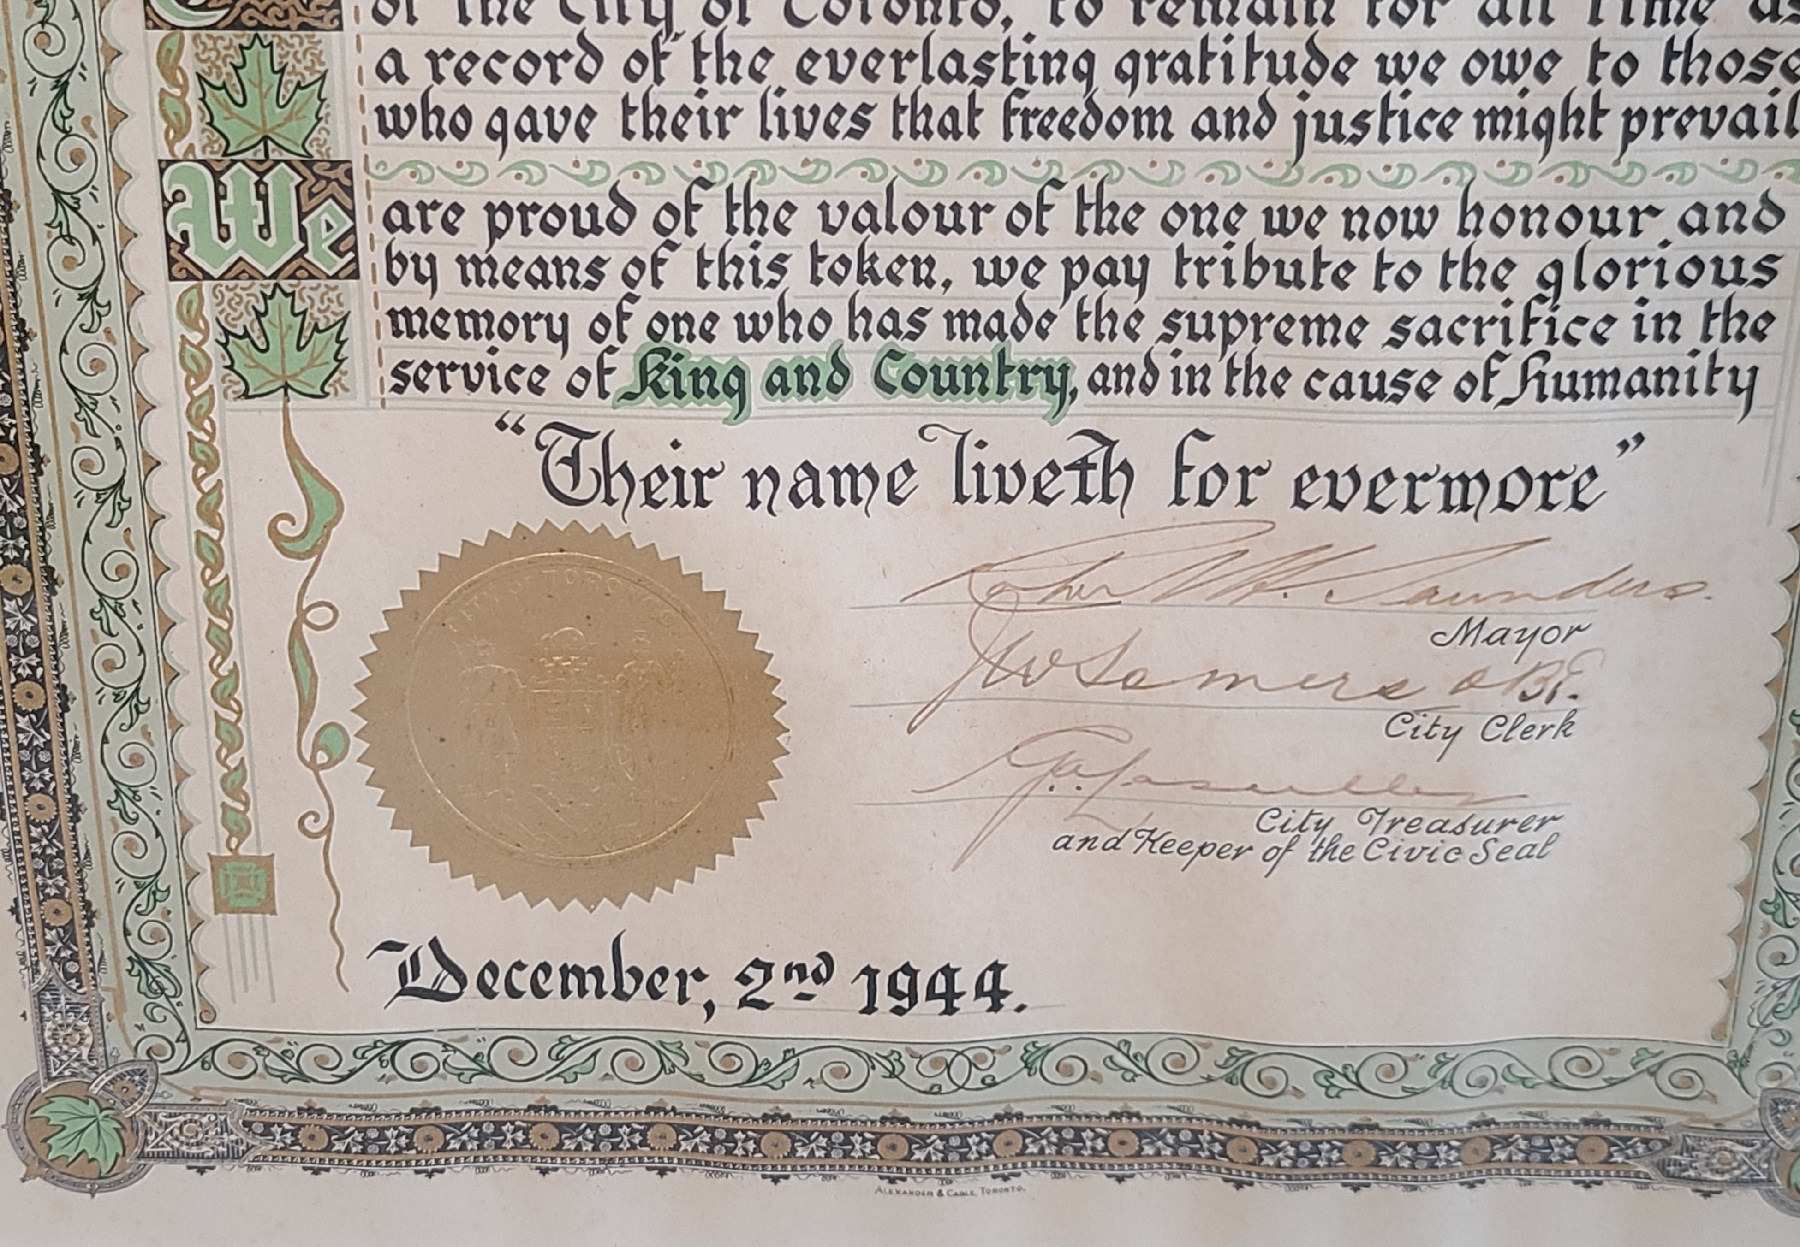 of the City of Toronto, to remain for all time as
a record of the everlasting gratitude we owe to those
who gave their lives that freedom and justice might prevail
We
are proud of the valour of the one we now honour and
by means of this token, we pay tribute to the glorious
memory of one who has made the supreme sacrifice in the
service of King and Country, and in the cause of humanity
"Their name liveth for evermore"
CITY OF TORONTO
Robert H. Saunders.
Mayor
J W Somers OBE.
City Clerk
City Treasurer
and Keeper of the Civic Seal
December, 2nd 1944.
ALEXANDER & CABLE, TORONTO.